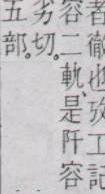 者徹也攷工記
容二軌。是阡容
劣切。
五部。